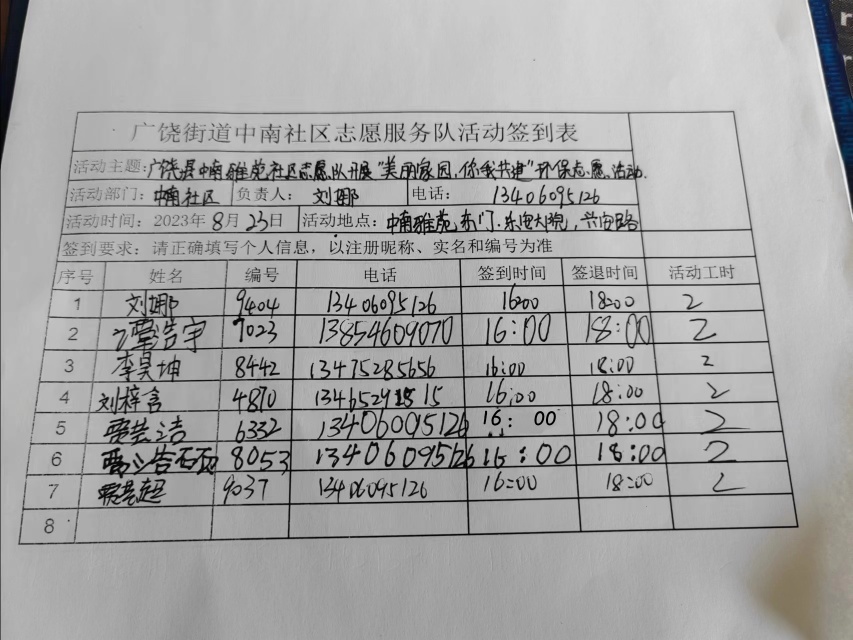 广饶街道中南社区志愿服务队活动签到表
活动主题：广饶县中南雅苑社区志愿队开展"美丽家园，你我共建"环保志愿活动.
活动部门：中南社区 负责人： 刘娜 电话： 13406095126
活动时间：2023年8月23日 活动地点：中南雅苑东门.东电大院，兴电路
签到要求：请正确填写个人信息，以注册昵称、实名和编号为准
序号 姓名 编号 电话 签到时间 签退时间 活动工时
1 刘娜 9404 13406095126 16:00 18:00 2
2 浩宇 7023 13854609070 16:00 18:00 2
3 李昊坤 8442 13475285656 16:00 18:00 2
4 刘梓言 4870 16:00 18:00 2
5 6332 13406095126 16:00 18:00 2
6 8053 13406095126 16:00 18:00 2
7 9037 13406095126 16:00 18:00 2
8